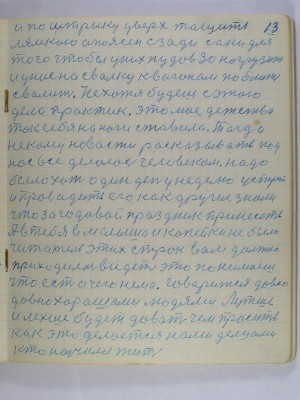 13
и по штрику уверх тащить
лямкою опоясен сзади сани для
того чтобы уних пудов 30 нагрузит
и уже на свалку квагонам поближе
свалит. Нехотя будеш с этого
дела практик. это мое детства
так себя на ноги ставила. Тагда
некому новости расказывать под
нос все деловое человеком. надо
было хот один ден у неделю устроит
и провадить его как другие знали
что за годовой праздник принесеть
А в тебя в малыша и копейки не было
читатели этих строк вам должно
приходилос видеть это понимаеш
что есть а чего нема. гаварится давно
давно харашами людями Лутше
и легше будет давать чем прасить
как это делается нама делцами
кто научили жит